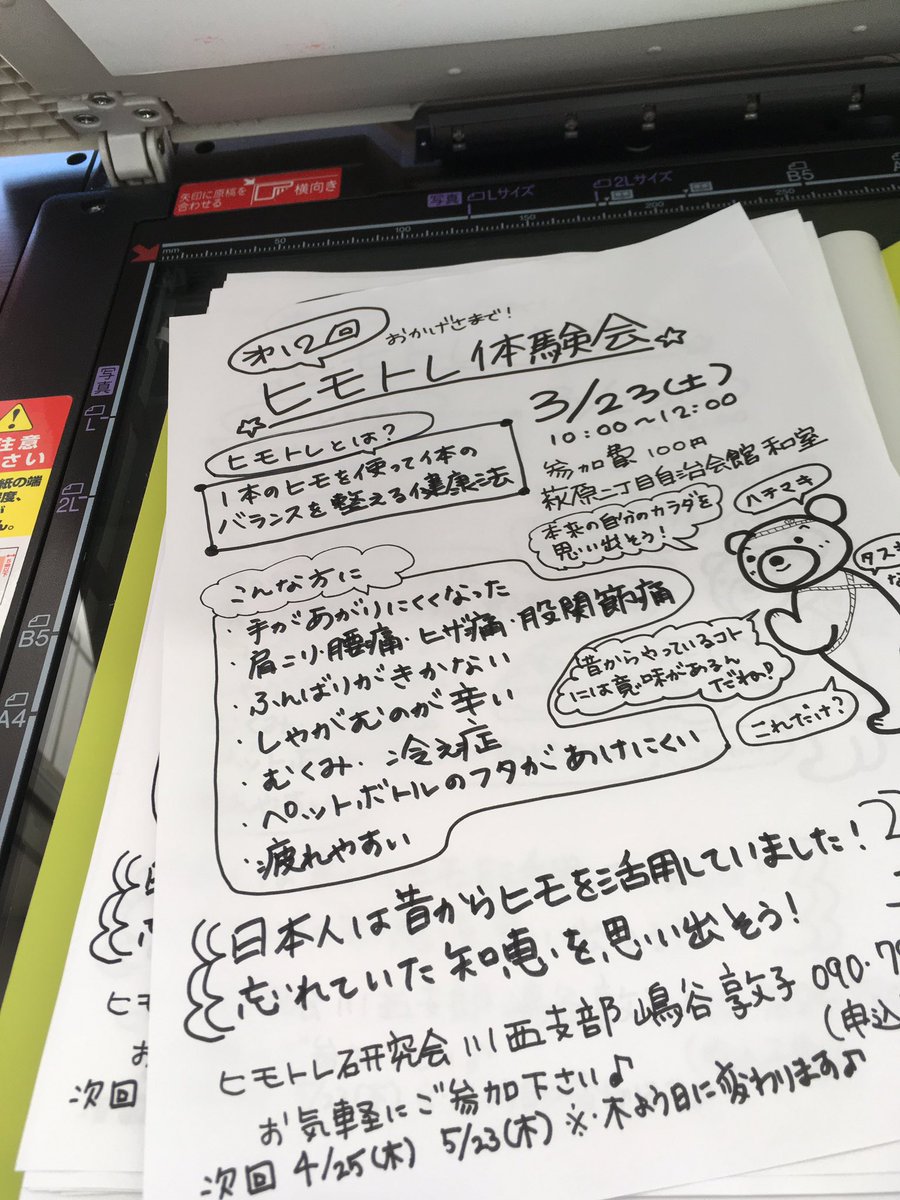 矢印に原稿を
合わせる
横向き
写真
Lサイズ
2Lサイズ
B5
mm
50
100
150
200
250
写真
L
2L
B5
A4
注意
さい
紙の端
第17回
おかげさまで!
ヒモトレ体験会
3/23(土)
10:00〜12:00
参加費 100円
萩原二丁目自治会館 和室
ヒモトレとは?
1本のヒモを使って体の
バランスを整える健康法
本来の自分のカラダを
思い出そう!
ハチマキ
タスキ
こんな方に
・手があがりにくくなった
・肩こり・腰痛・ヒザ痛・股関節痛
・ふんばりがきかない
・しゃがむのが辛い
・むくみ・冷え症
・ペットボトルのフタがあけにくい
・疲れやすい
昔からやっているコト
には意味があるん
だね!
これだけ?
日本人は昔からヒモを活用していました!
忘れていた知恵を思い出そう!
ヒモトレ研究会 川西支部 嶋谷敦子 090-7
(申込
お気軽にご参加下さい♪
次回 4/25(木) 5/23(木) ※木よう日に変わります♪
ヒモ
お
次回